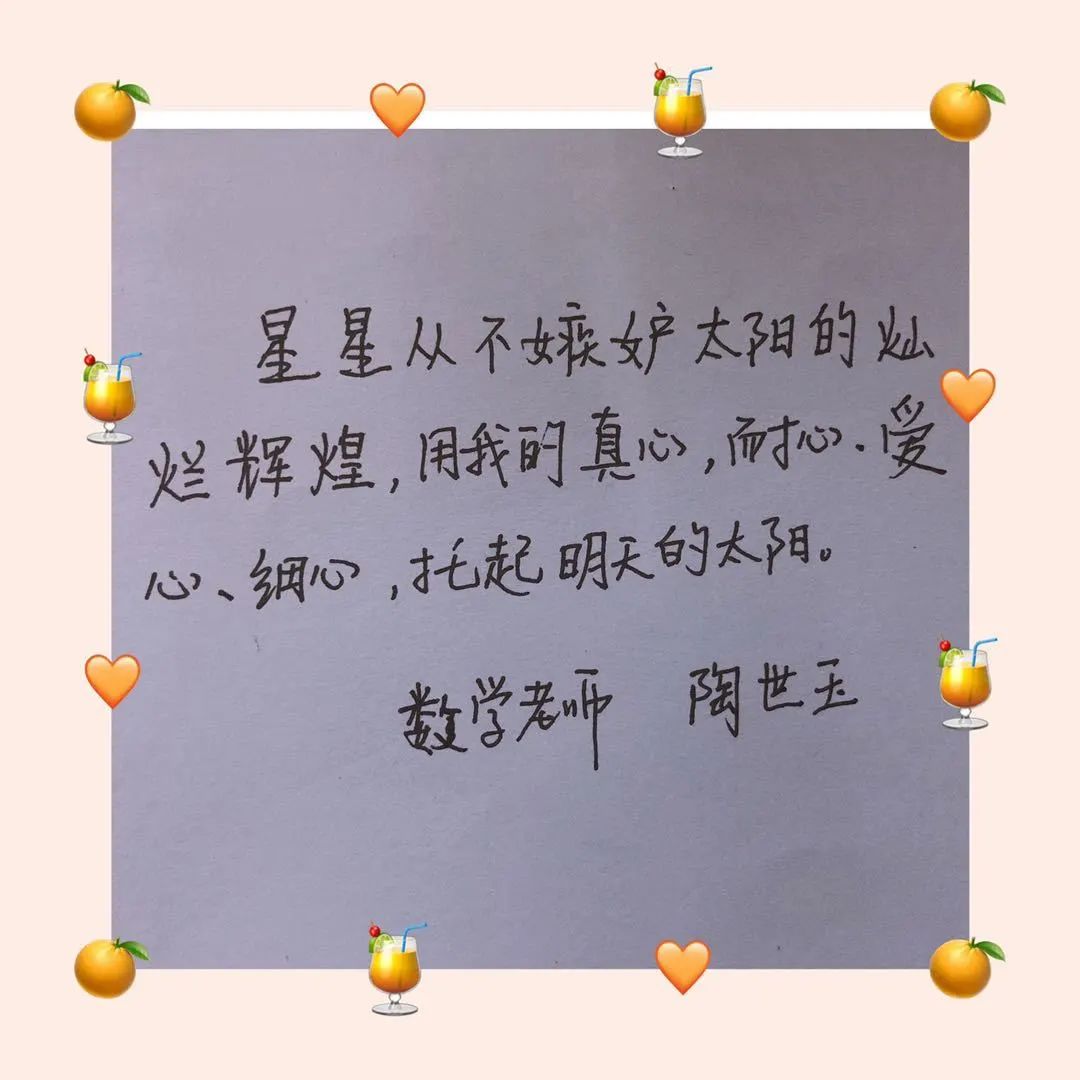 星星从不嫉妒太阳的灿
烂辉煌,用我的真心,耐心、爱
心、细心,托起明天的太阳。
数学老师 陶世玉